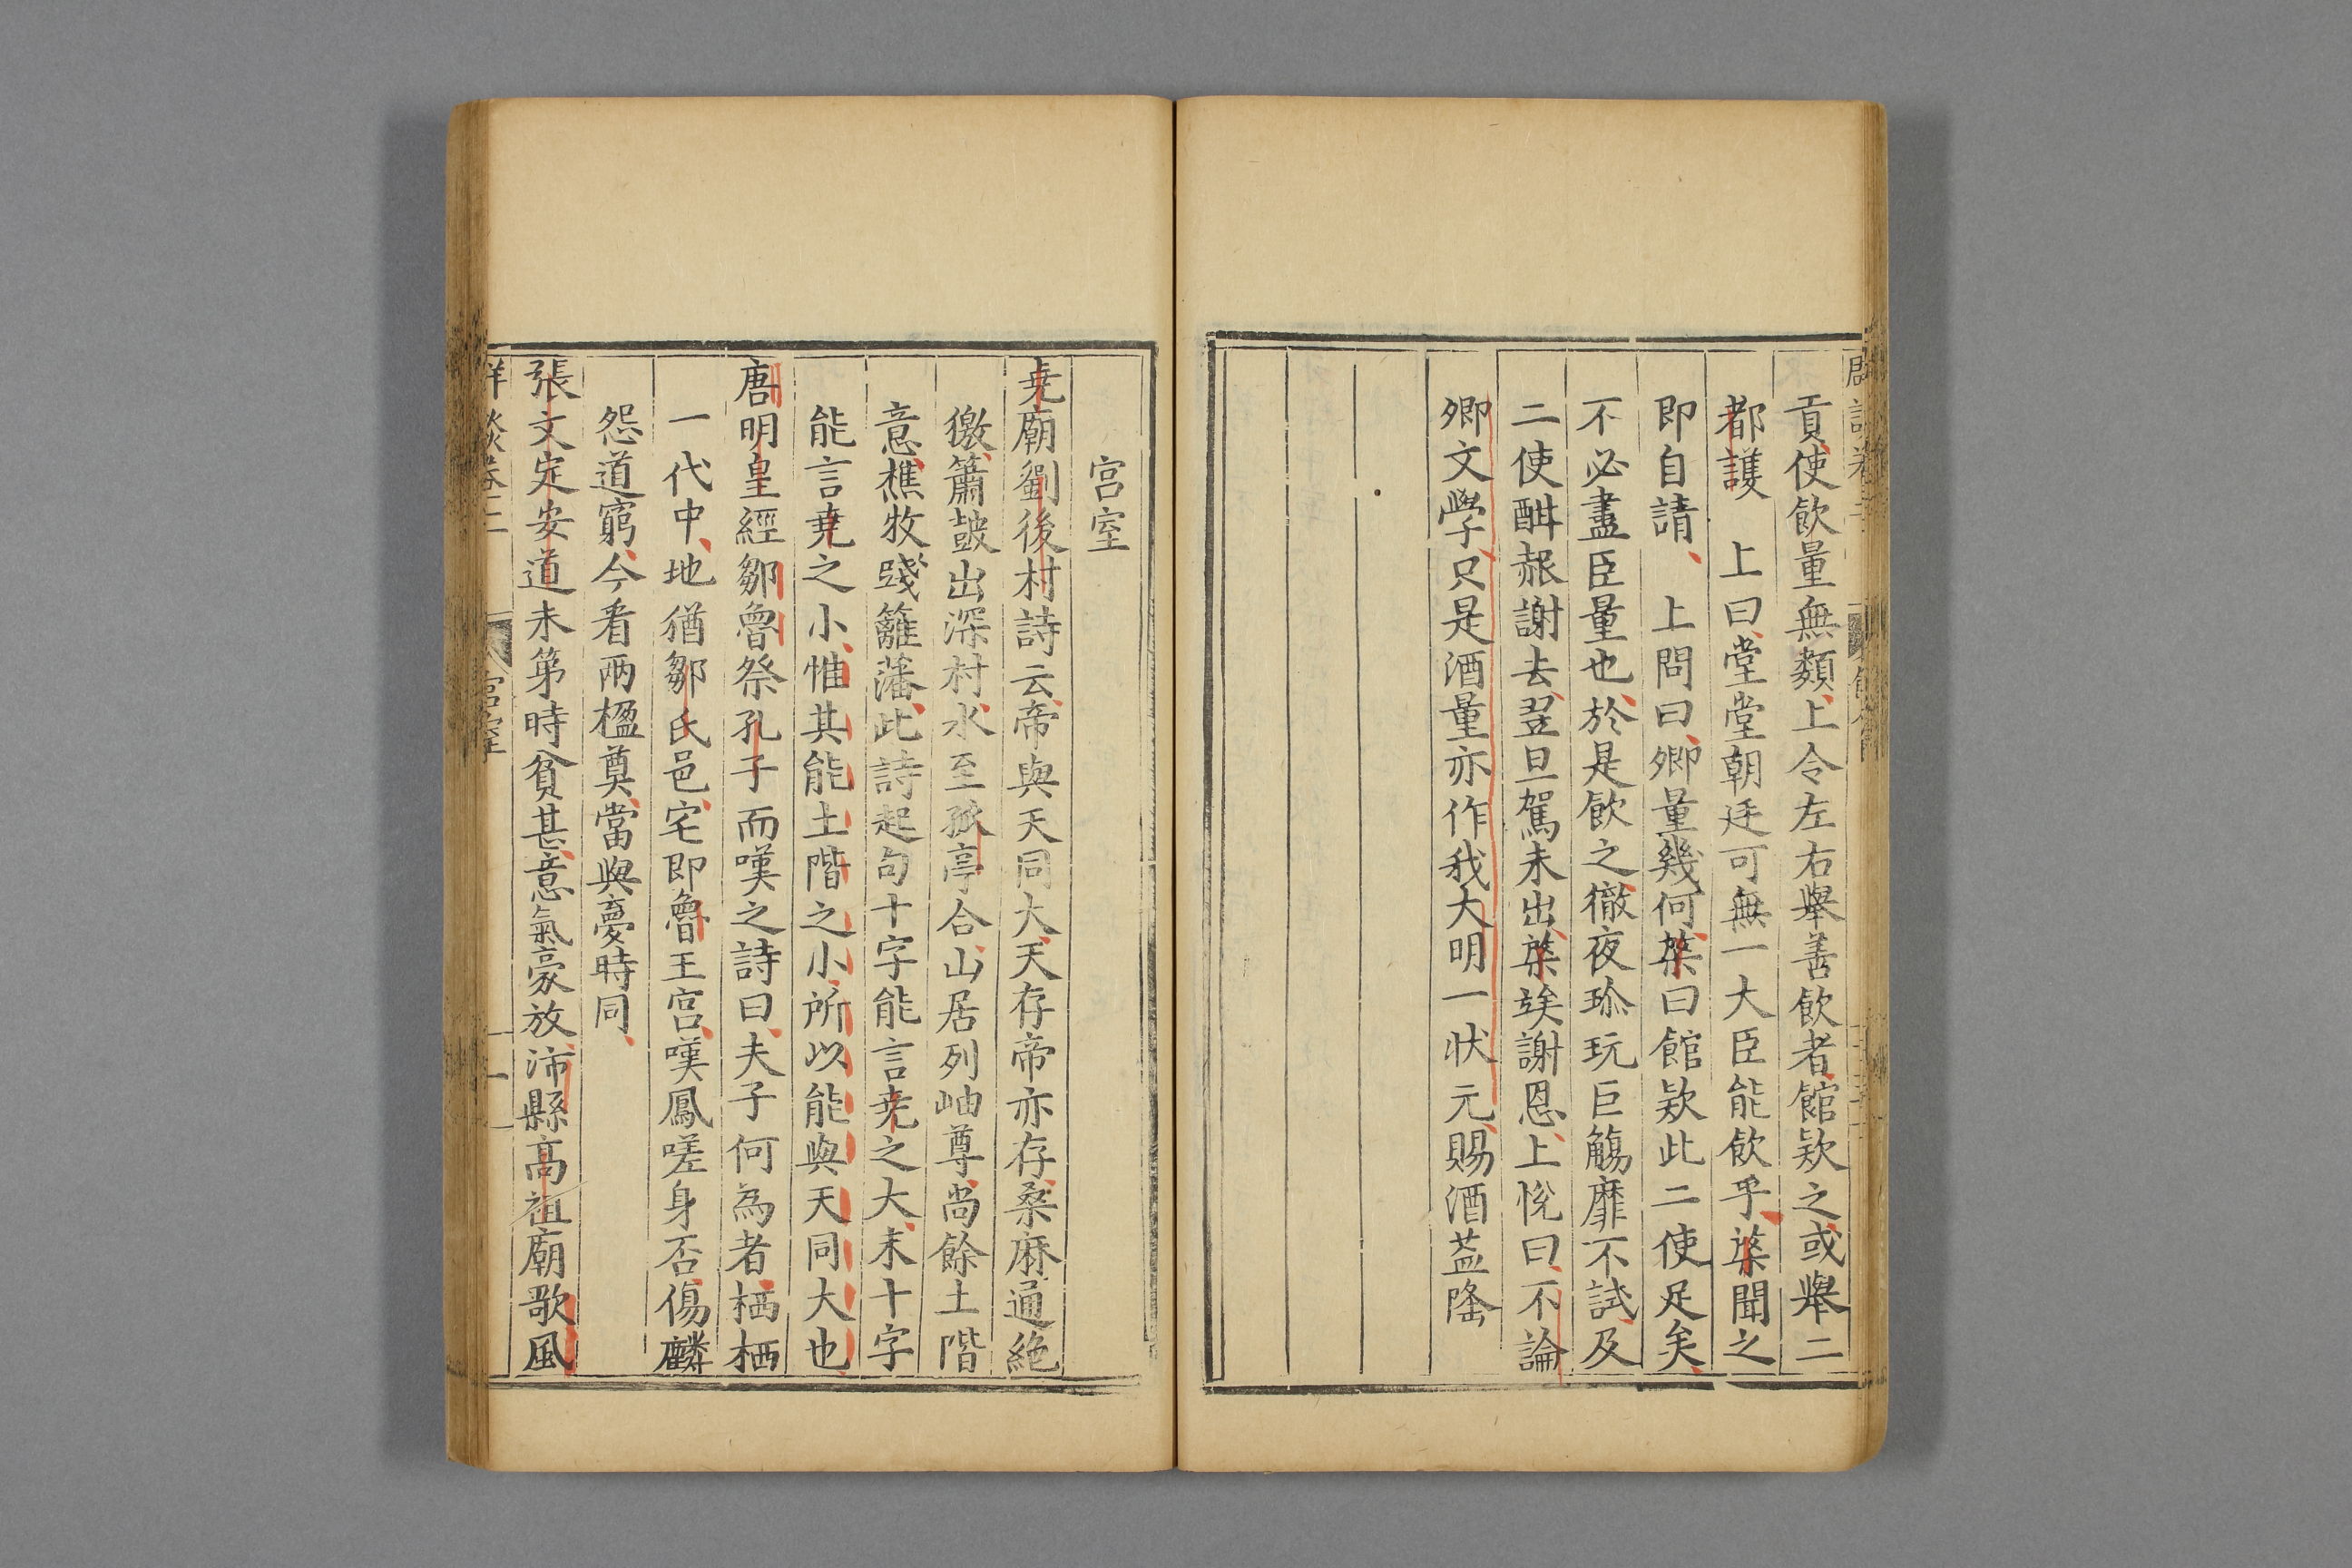 貢使飲量無纇上令左右舉善飲者館欵之或舉二
都護　上曰堂堂朝廷可無一大臣能飲乎棨聞之
即自請　上問曰卿量幾何棨曰館欵此二使足矣
不必盡臣量也於是飲之徹夜珎玩巨觴靡不試及
二使酣赧謝去翌旦駕未出棨竢謝恩上悅曰不論
卿文學只是酒量亦作我大明一狀元賜酒葢隆
宮室
堯廟劉後村詩云帝與天同大天存帝亦存桑麻通絶
徼簫皷出深村水至孤亭合山居列岫尊尚餘土階
意樵牧踐籬藩此詩起句十字能言堯之大末十字
能言堯之小惟其能土階之小所以能與天同大也
唐明皇經鄒魯祭孔子而嘆之詩曰夫子何為者栖栖
一代中地猶鄒氏邑宅即魯王宮嘆鳳嗟身否傷麟
怨道窮今看兩楹奠當與夢時同
張文定安道未第時貧甚意氣豪放沛縣高祖廟歌風
卷二
宮室